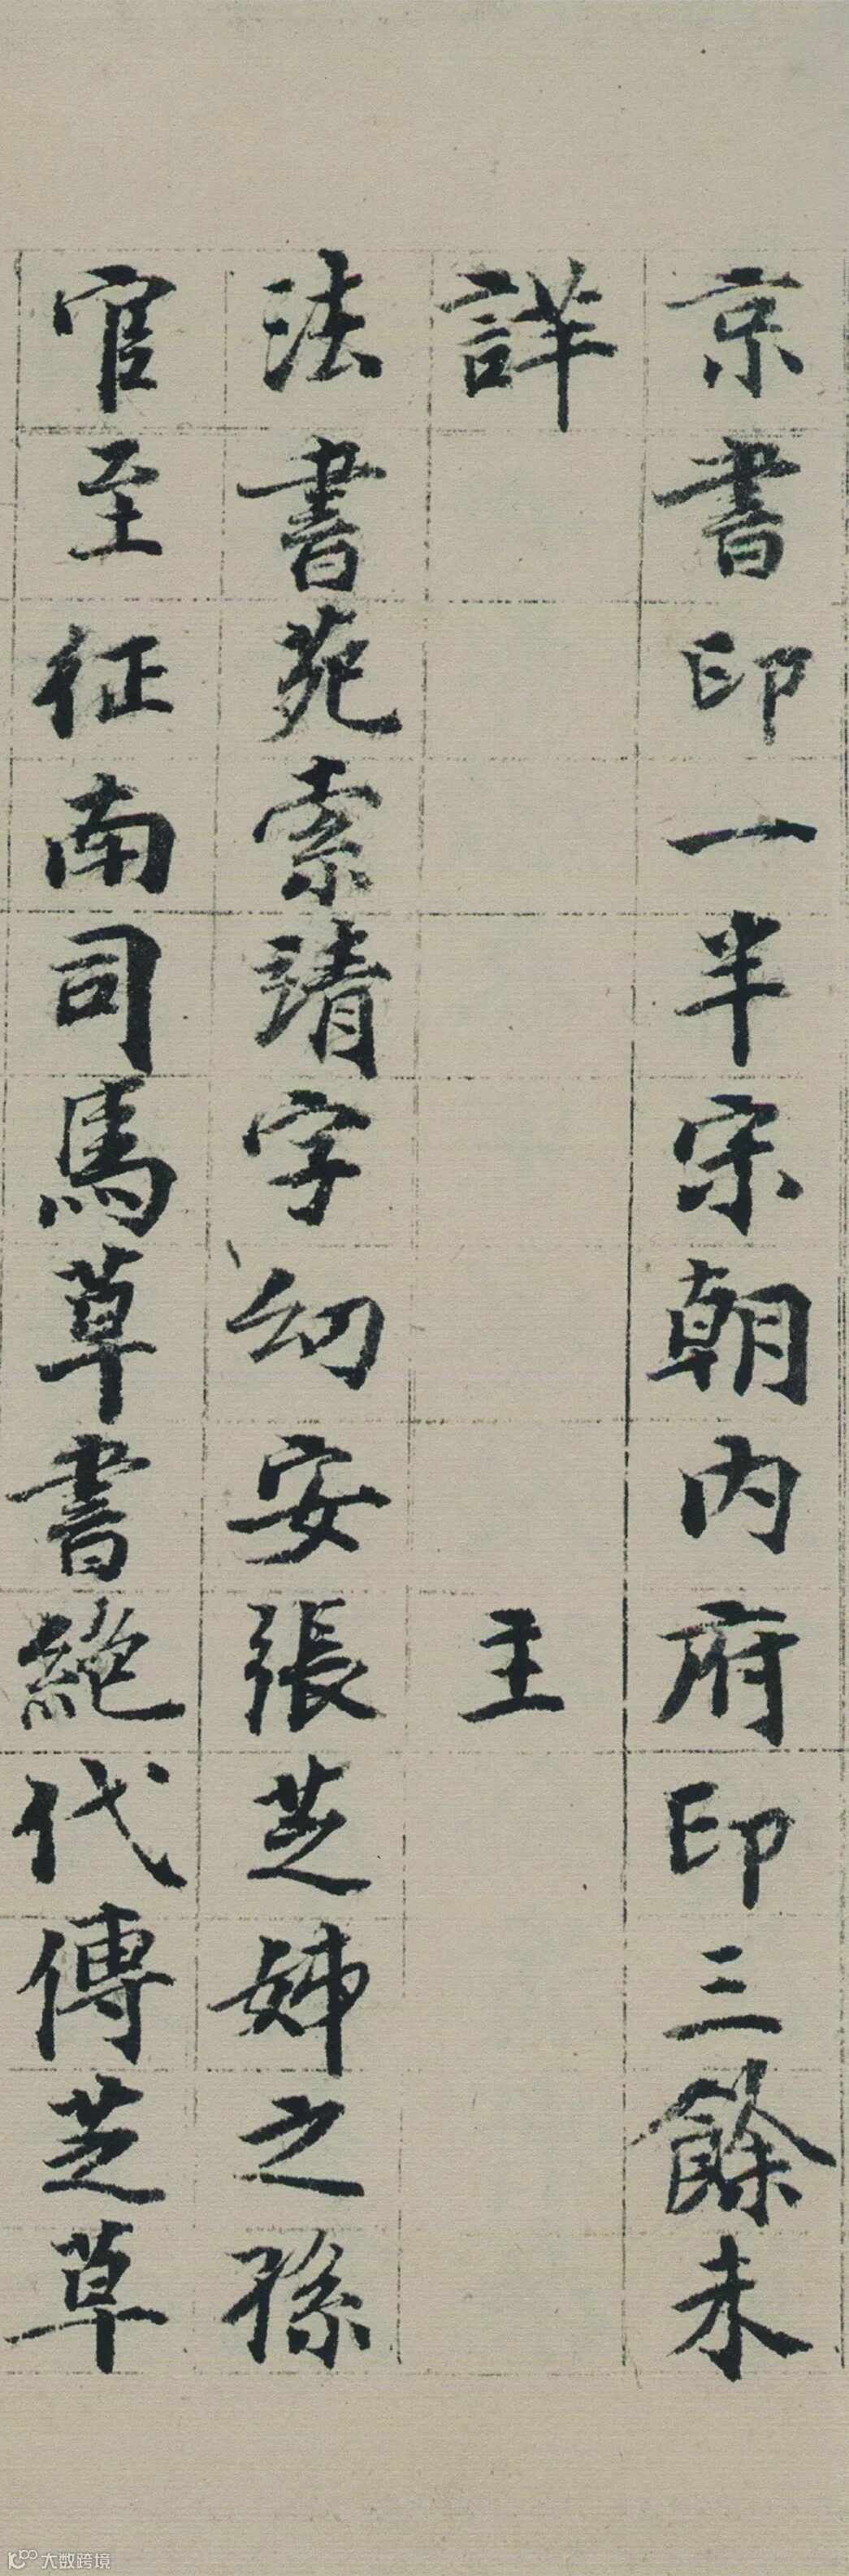 京書印一半宋朝内府印三餘未
詳 主
法書苑索靖字幼安張芝姊之孫
官至征南司馬草書絶代傳芝草
大数跨境